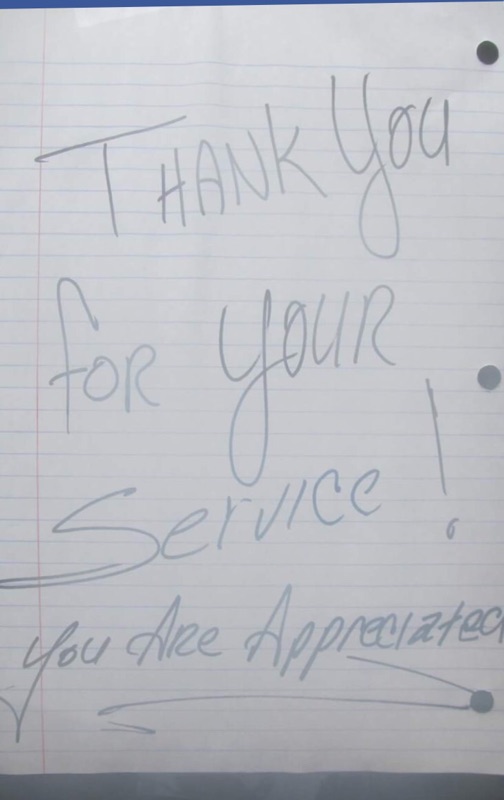 THANK YOU
for YOUR
Service!
You Are Appreciated